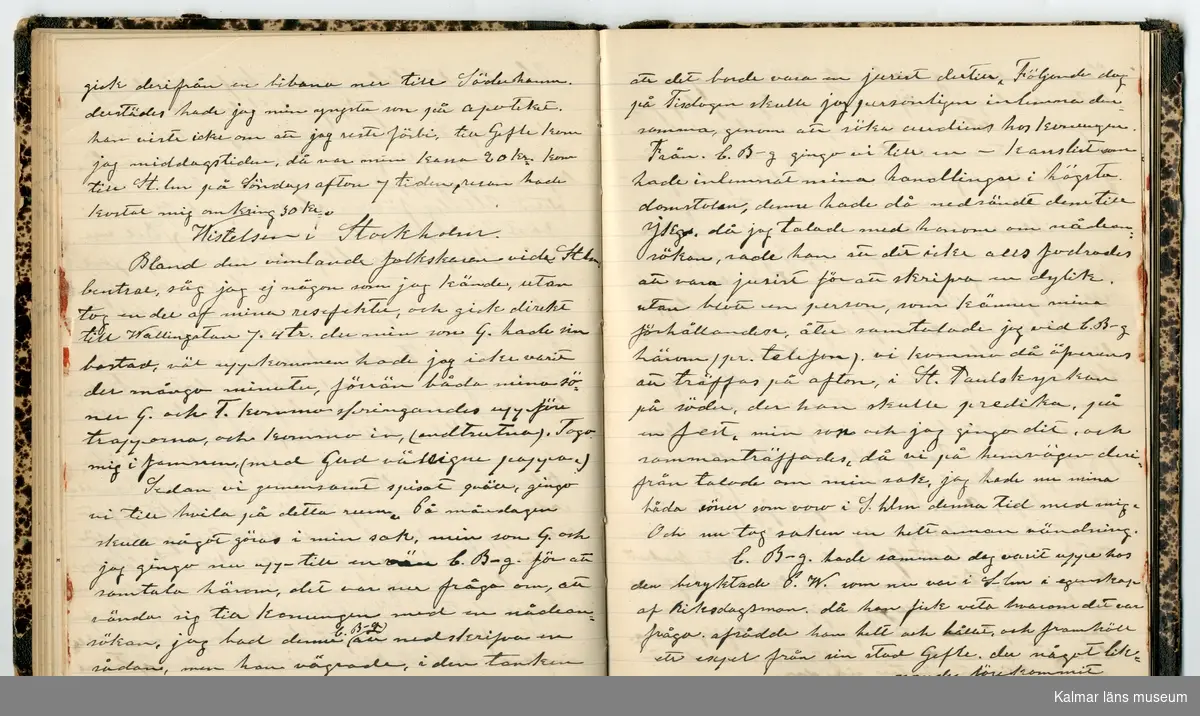 gick derifrån en bibana ner till Söderhamn.
derstädes hade jag min yngste son på apoteket.
han viste icke om att jag reste förbi, till Gefle kom
jag middagstiden, då var min kassa 20 kr. kom
till St.lm på Söndags afton 7 tiden, resan hade
kostat mig omkring 30 kr.
Wistelsen i Stockholm.
Bland den vimlande folkskaran vid St.lm
central, såg jag ej någon som jag kände, utan
tog en del af mina reseffekter, och gick direkt
till Wallingatan 7. 4 tr. der min son G. hade sin
bostad, väl uppkommen hade jag icke varit
der många minuter, förrän båda mina sö-
ner G. och T. kommo springandes uppföre
trapporna, och kommo in, (andtrutna). Togo
mig i famnen, (med Gud välsigne pappa.)
Sedan vi gemensamt spisat qväll, gingo
vi till hvila på detta rum. På måndagen
skulle något göras i min sak, min son G. och
jag gingo nu upp till en C. B-g. för att
samtala härom, det var nu fråga om, att
vända sig till konungen med en nådean-
sökan, jag bad denne (C. B-g) att nedskrifva en
sådan, men han vägrade, i den tanken
att det borde vara en jurist dertill. Följande dag
på Tisdagen skulle jag personligen inlemna den-
samma, genom att söka audiens hos konungen.
Från C. B-g gingo vi till en - kanslist som
hade inlemnat mina handlingar i högsta
domstolen, denne hade då nedsändt dem till
då jag talade med honom om nådean-
sökan, sade han att det icke alls fodrades
att vara jurist för att skrifva en dylik.
utan blott en person, som känner mina
förhållanden, åter samtalade jag vid C. B-g
härom (pr. telefon). vi kommo då öfverens
att träffas på afton, i St. Paulskyrkan
på söder, der han skulle predika, på
en fest, min son och jag gingo dit, och
sammanträffades, då vi på hemvägen deri-
från talade om min sak, jag hade nu mina
båda söner som voro i S.hlm denna tid med mig.
Och nu tog saken en helt annan vändning.
C. B-g. hade samma dag varit uppe hos
den beryktade P. W. som nu var i S-lm i egenskap
af Riksdagsman. då han fick veta hvarom det var
fråga. afrådde han helt och hållet, och framhöll
ett exepel från sin stad Gefle. der något lik-
nande förekommit
Kalmar läns museum